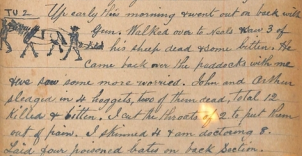 TU 2 Up early this morning & went out on back with
Gun. Walked over to Neals & saw 3 of
his sheep dead & some bitten. He
Came back over the paddocks with me
& we saw some more worried. John and Arthur
sledged in 4 hoggets, two of them dead, Total 12
Killed & bitten. I cut the throats of to put them
out of pain. I skinned 4 & am declaring 8.
Laid four poisoned baits on back section.